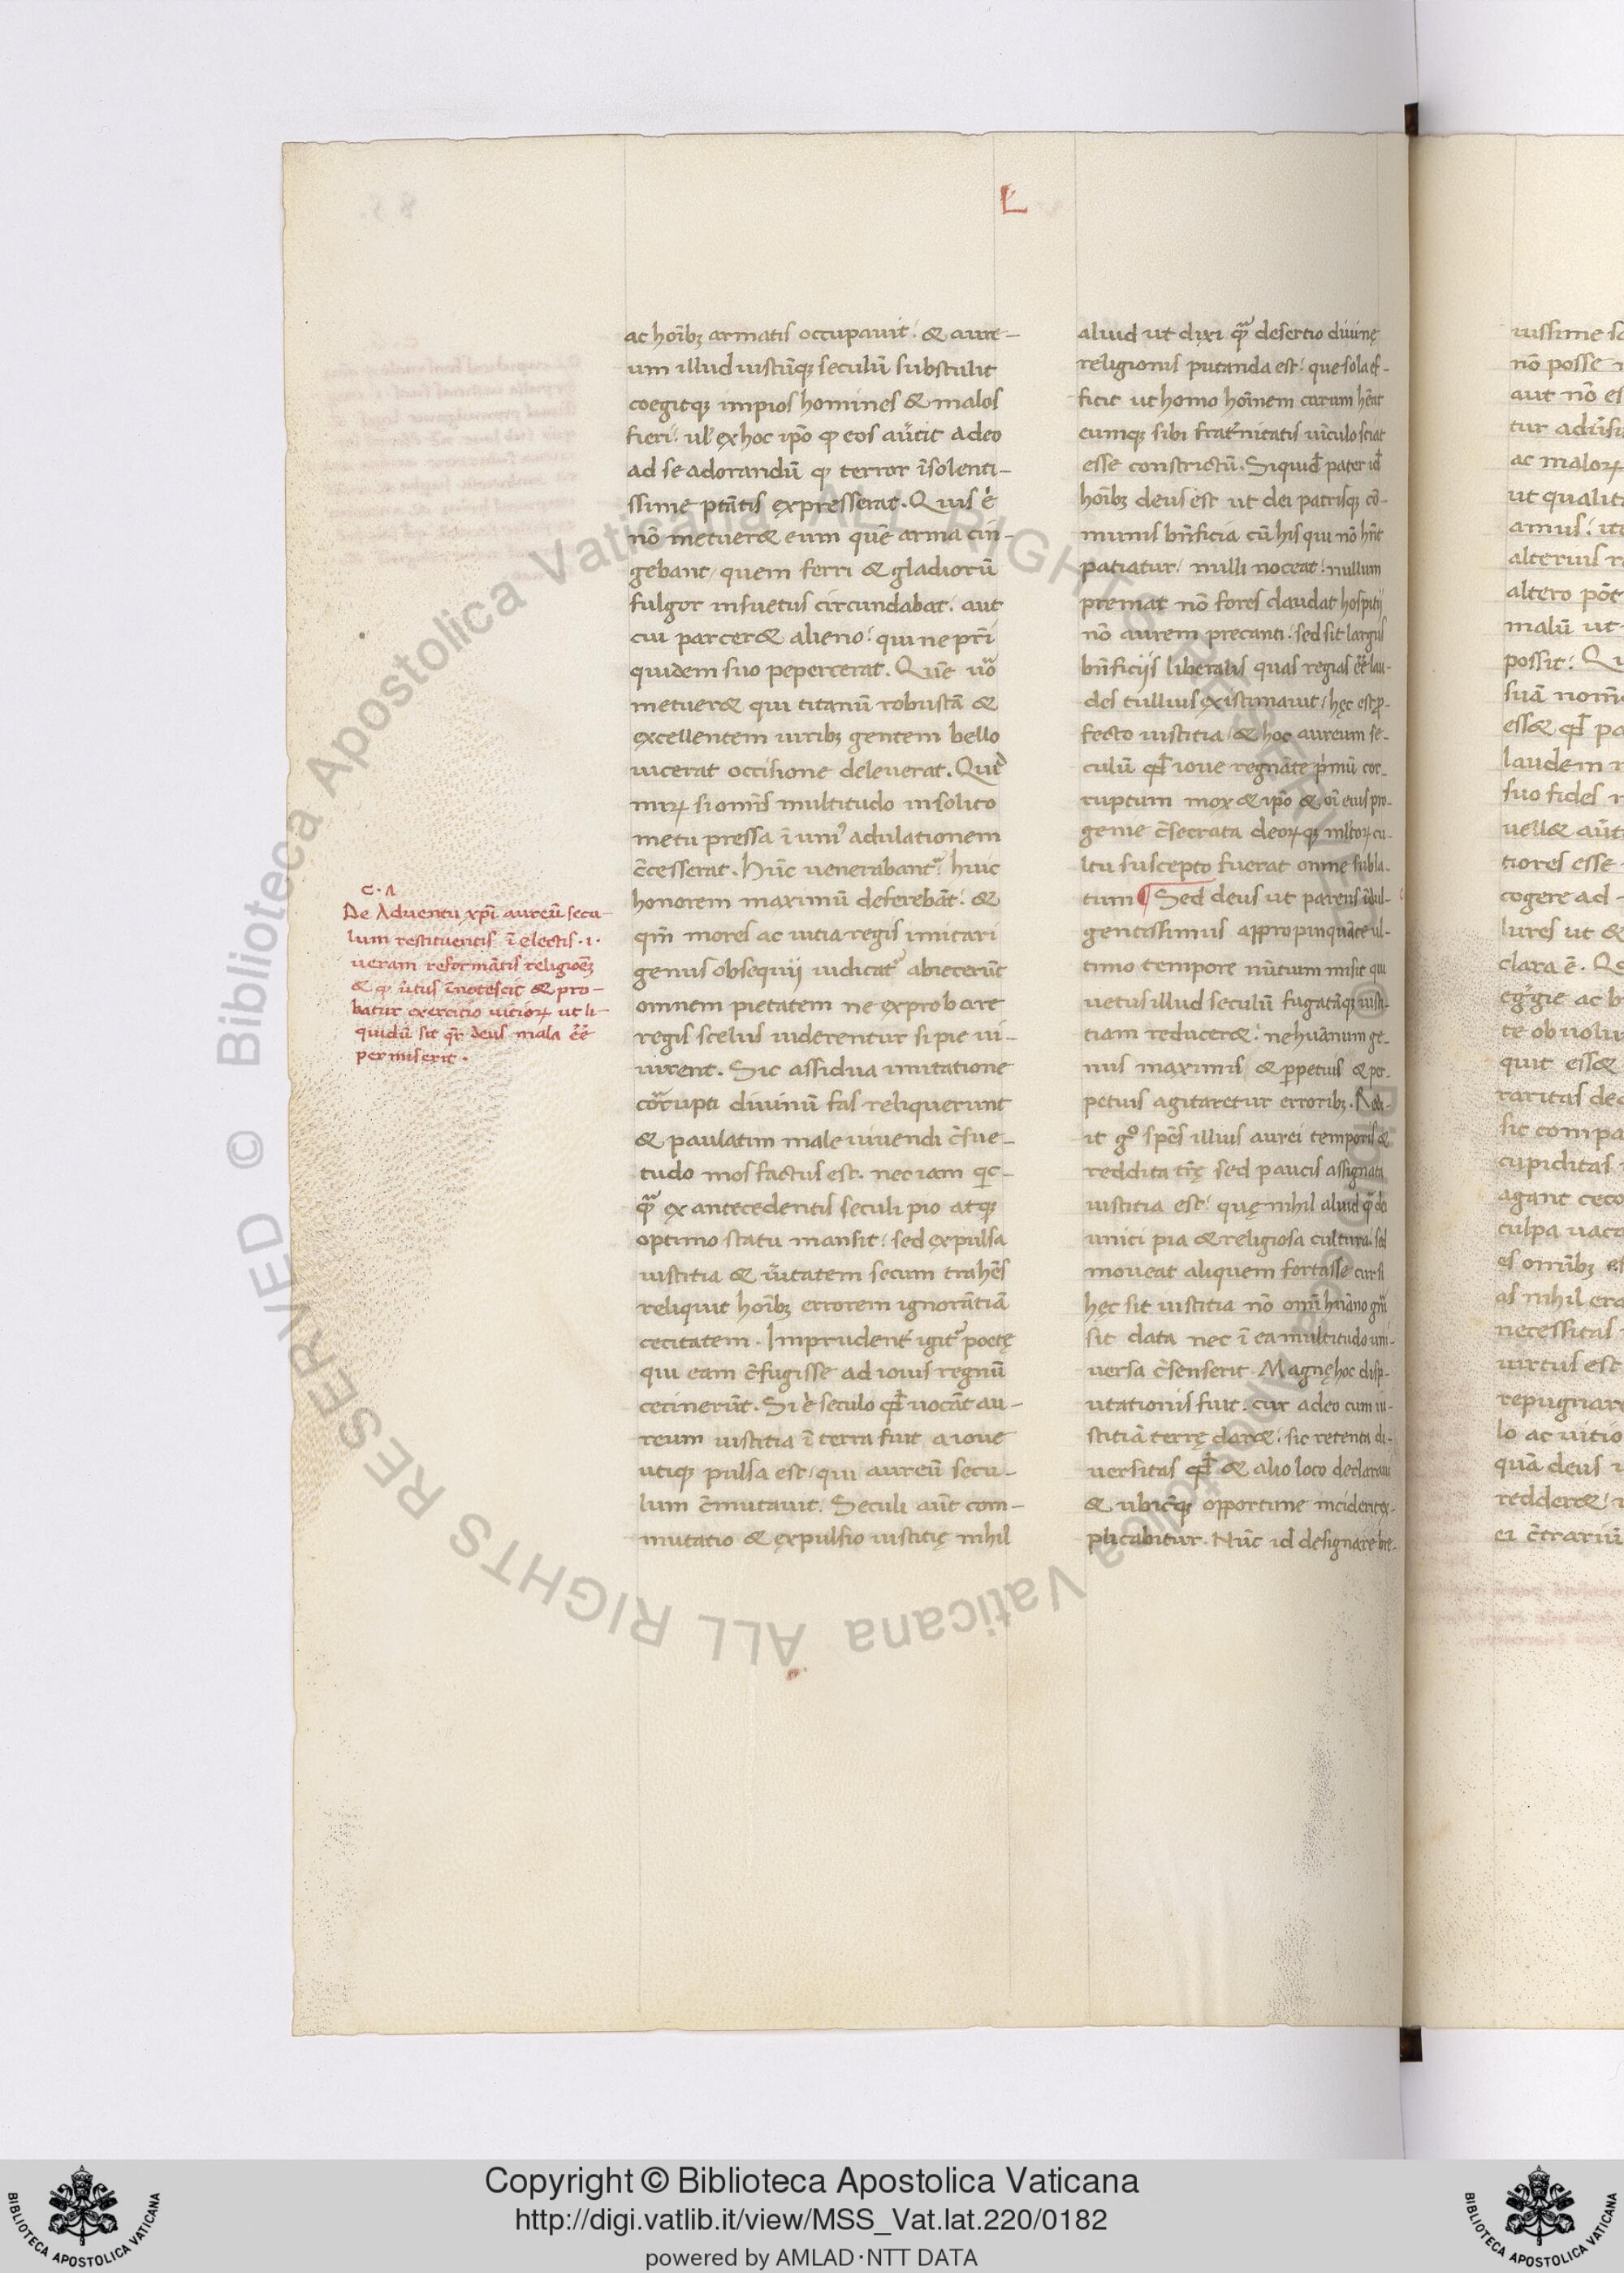 L
ac hoı̄bꝫ armatis occupauit. & aure-
um illud iustūqꝫ seculū substulit
coegitqꝫ impios homines & malos
fieri: ul' ex hoc ip̄o ꝙ eos au̓tit adeo
ad se adorandū ꝙ terror īsolenti-
ssime pt̄atis expresserat. Quis ē
nō metueret eum quē arma cin-
gebant, quem ferri & gladiorū
fulgor insuetus circundabat. aut
cui parceret alieno: qui ne pr̄i
quidem suo pepercerat. Quē uō
metueret qui titanū robustā &
excellentem uiribꝫ gentem bello
uicerat occisione deleuerat. Quid
miꝝ si om̄is multitudo insolito
metu pressa ī uni' adulationem
c̄cesserat. Hūc uenerabant^r huic
honorem maximū deferebāt: &
qm̄ mores ac uitia regis imitari
genus obsequij iudicat^r abiecerūt
omnem pietatem ne exprobare
regis scelus uiderentur si pie ui-
uerent. Sic assidua imitatione
corrupti diuinū fas reliquerunt
& paulatim male uiuendi c̄sue-
tudo mos factus est. nec iam qic-
qᵃ ex antecedentis seculi pio atqꝫ
optimo statu mansit: sed expulsa
iustitia & u̓itatem secum trahēs
reliquit hoı̄bꝫ errorem ignorātiā
cecitatem. Imprudent' igit^r poetę
qui eam c̄fugisse ad iouis regnū
cecinerūt. Si ē seculo qd̄ uocāt au-
reum iustitia ī terra fuit a ioue
utiqꝫ pulsa est, qui aureū secu-
lum c̄mutauit. Seculi aūt com-
mutatio & expulsio iustitię nihil
aliud ut dixi qᵃ desertio diuinę
religionis putanda est: que sola ef-
ficit ut homo hoı̄nem carum hēat
eumqꝫ sibi frat'nitatis uı̄culo sciat
esse constrictū. Siquid̄ pater id̄
hoı̄bꝫ deus est ut dei patrisqꝫ cō-
munis bn̄ficia cū his qui nō hn̄t
patiatur, nulli noceat: nullum
premat nō fores claudat hospiti
nō aurem precanti. sed sit largus
bn̄ficijs liberalis quas regias ēē lau-
des tullius existimauit, hęc est ꝓ-
fecto iustitia & hoc aureum se-
culū qd̄ ioue regnāte p'mū cor-
ruptum mox & ip̄o & oı̄ eius pro-
genie c̄secrata deoꝝqꝫ mltoꝝ cu-
ltu suscepto fuerat omne subla-
tum ¶ Sed deus ut parens īdul-
gentissimus appropinquāte ul-
timo tempore nūtium misit qui
uetus illud seculū fugatāqꝫ iusti-
tiam reduceret: ne huānum ge-
nus maximis & ꝑpetuis & per-
petuis agitaretur erroribꝫ. Redi-
it gᵒ spēs illius aurei temporis &
reddita tr̄ę sed paucis assignata
iustitia est: quę nihil aliud qᵃ dei
unici pia & religiosa cultura. sed
moueat aliquem fortasse cur si
hęc sit iustitia nō omı̄ hūano gn̄i
sit data nec ī ea multitudo uni-
uersa c̄senserit. Magnę hoc disp-
utationis fuit. cur adeo cum iu-
stitiā terrę daret: sic retenta di-
uersitas qd̄ & alio loco declaraui
& ubicūqꝫ opportune inciderit ex-
plicabitur. Nūc id designare bre-
C. Λ
De Aduentu xp̄i aureū secu-
lum restituentis ī electis. i.
ueram reformātis religioēꝫ
& ꝙ u̓tus ı̄notescit & pro-
batur exercitio uitioꝝ ut li-
quidū sit qr̄ deus mala ēē
permiserit.
Copyright © Biblioteca Apostolica Vaticana
http://digi.vatlib.it/view/MSS_Vat.lat.220/0182
powered by AMLAD·NTT DATA
BIBLIOTECA APOSTOLICA VATICANA
BIBLIOTECA APOSTOLICA VATICANA
© Biblioteca Apostolica Vaticana ALL RIGHTS RESERVED © Biblioteca Apostolica Vaticana ALL RIGHTS RESERVED